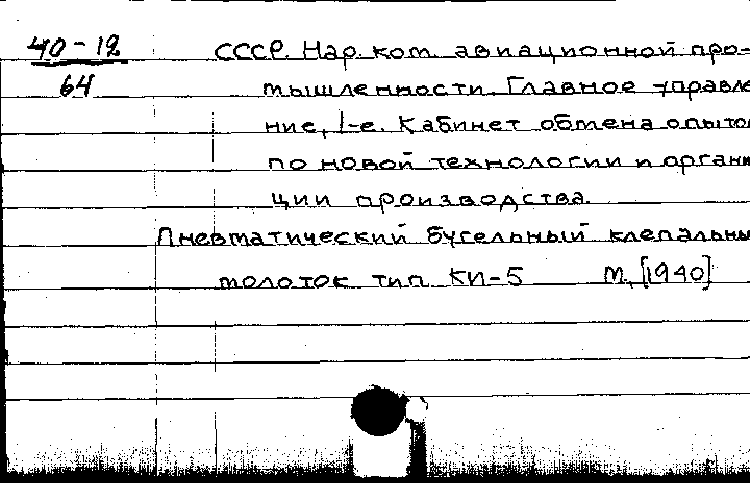 40-12
64
СССР. Нар. ком. авиационной про-
мышленности. Главное управле
ние, 1-е. Кабинет обмена опыто
по новой технологии и органи
ции производства.
Пневматический бугельный клепальны
молоток тип КИ-5 М., [1940]